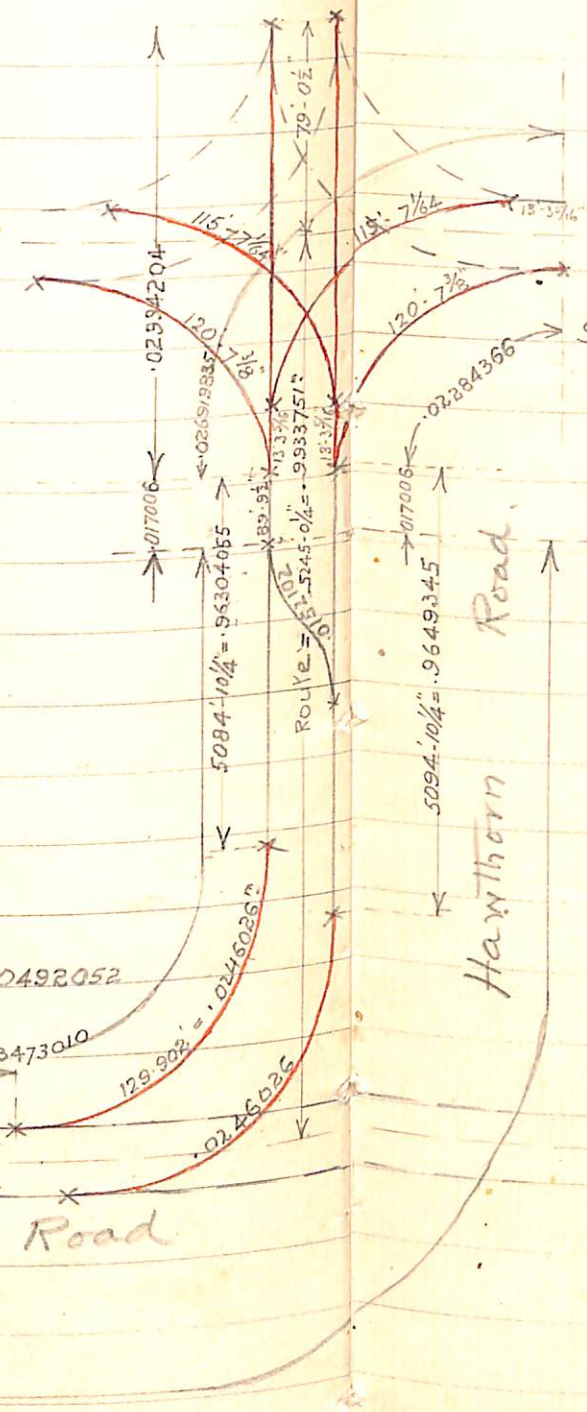 79'-0½"
115'-7 1/64"
115'-7 1/64
13'-3 3/16"
.02994204
120'-7⅜"
120'-7⅜"
.026919835
.02284366
13'3 3/16"
13'-3 3/16
.017006
.017006
89'.9½"
Route = 5245'-0¼" = .9933751ᵐ
.0152102
5084'-10¼" = .96304055
5094'-10¼" = .9649345
Hawthorn Road.
0492052
3473010
129.902' = .0246026ᵐ
.0246026
Road